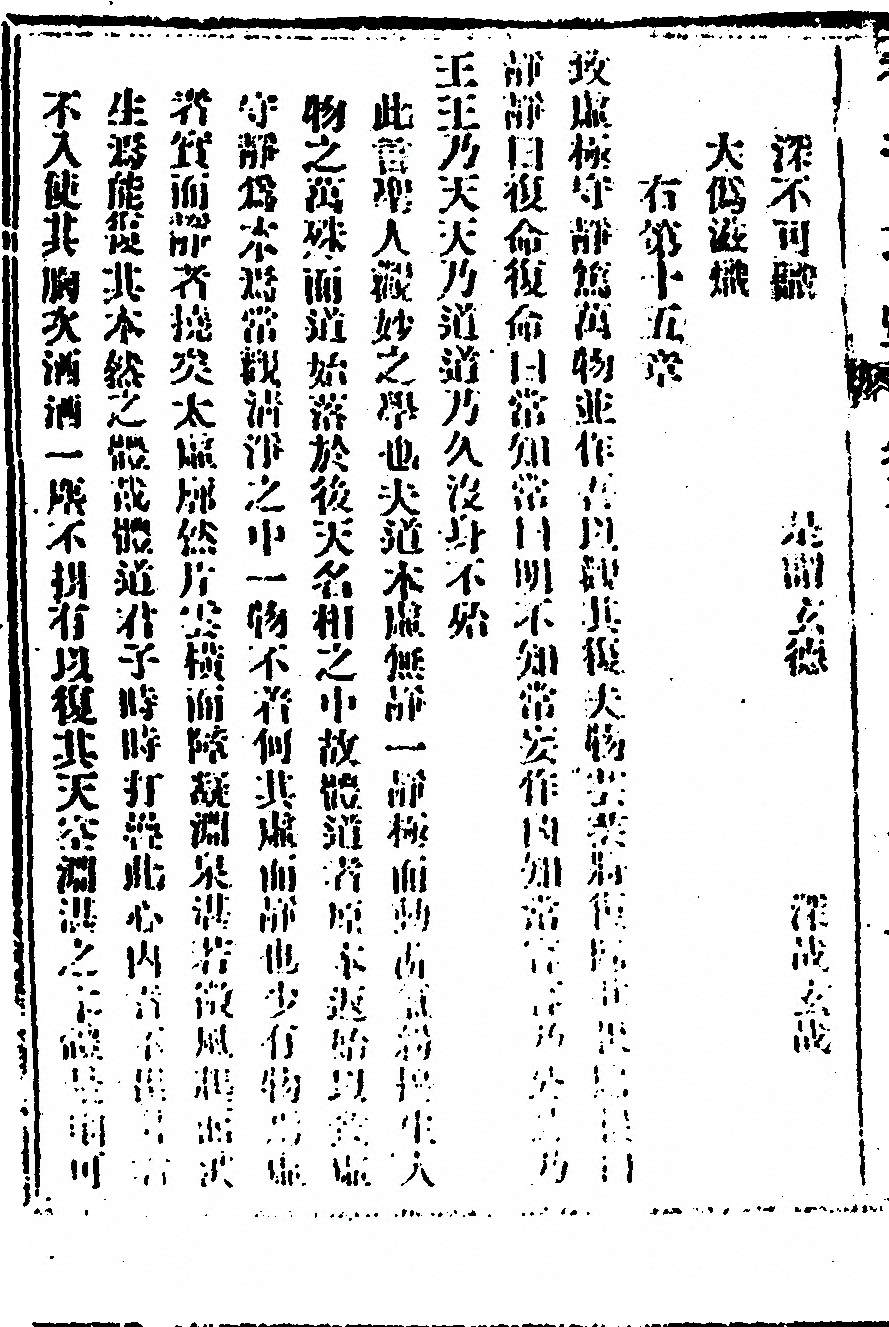 深不可識 是謂玄德 深哉玄哉
大僞滋熾
右第十五章
致虛極守靜篤萬物並作吾以觀其復夫物芸芸將復歸其根歸根曰
靜靜曰復命復命曰常知常曰明不知常妄作凶知常容容乃公公乃
王王乃天天乃道道乃久沒身不殆
此言聖人觀妙之學也夫道本虛無靜一靜極而動而生人
物之萬殊而道始落於後天名相之中故體道者原本返始以致虛
守靜爲本爲常觀清淨之中一物不着何其虛而靜也少有物焉虛
者實而靜者撓矣太虛廓然片雲橫而陰凝淵泉湛若微風起而波
生焉能復其本然之體哉體道君子時時打疊此心內者不出者
不入使其胸次洒洒一塵不掛有以復其天空淵湛之明可